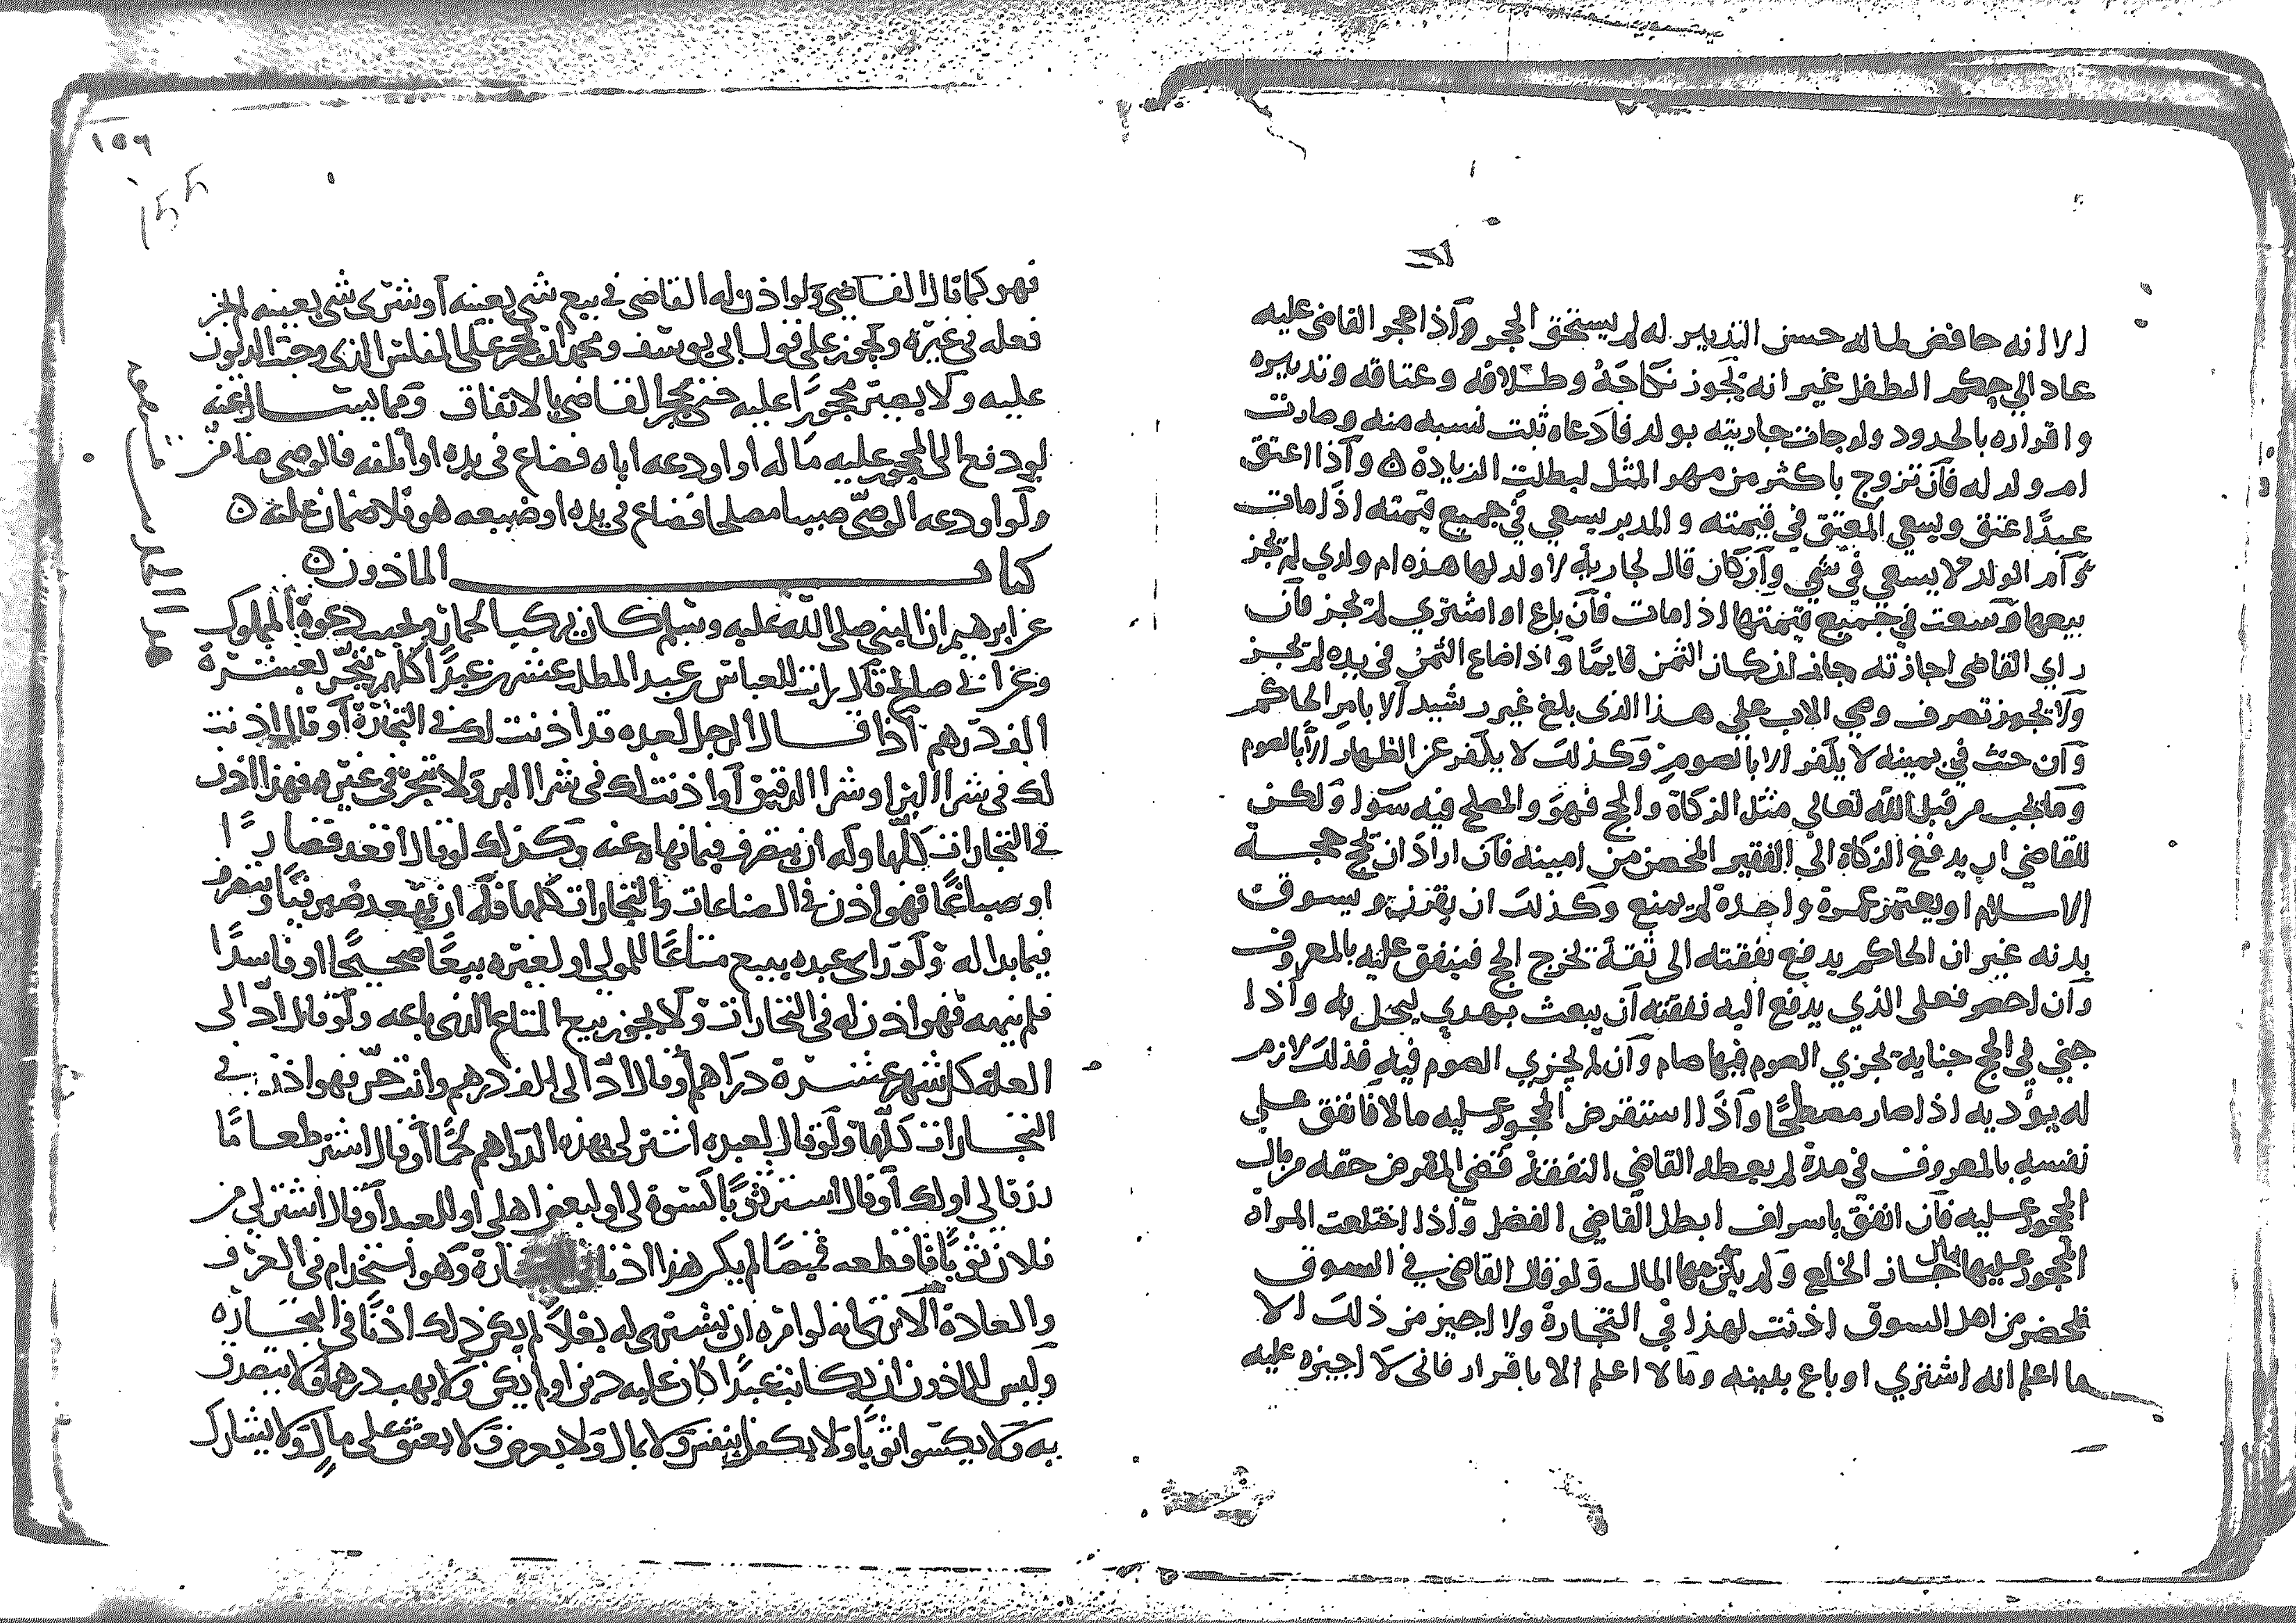 الا انه حافض لماله حسن التدبير له لم يستحق الحجر واذا حجر القاضي عليه
عاد الي حكم الطفل غير انه يجوز نكاحه وطلاقه وعتاقه وتدبيره
واقراره بالحدود ولو جات جاريته بولد فادعاه ثبت نسبه منه وصارت
ام ولد له فان تزوج باكثر من مهر المثل لبطلت الزيادة ه واذا اعتق
عبدًا عتق ويسعي المعتق في قيمته والمدبر يسعي في جميع قيمته اذا مات
وام الولد لا يسعي في شي وان كان قال لجارية لا ولد لها هذه ام ولدي لم يجز
بيعها وسعت في جميع قيمتها اذا مات فان باع او اشتري لم يجز فان
راي القاضي اجازته جاز اذ كان الثمن قايمًا واذا ضاع الثمن في يده لم يجز
ولا يجوز تصرف وصي الاب علي هذا الذي بلغ غير رشيد الا بامر الحاكم
وان حنث في يمينه لا يكفر الا بالصوم وكذلك لا يكفر عن الظهار الا بالصوم
وما يجب من قبل الله تعالي مثل الزكاة والحج فهو والمصلح فيه سوا ولكن
للقاضي ان يدفع الزكاة الي الفقير المحصن من امينه فان اراد ان يحج حجة
الاسلام او يعتمر عمرة واحدة لم يمنع وكذلك ان يقرن ويسوق
بدنه غير ان الحاكم يدفع نفقته الى ثقة لخرج الحج فينفق عليه بالمعروف
وان احصر فعلى الذي يدفع اليه نفقته ان يبعث بهدي ليحل به واذا
جني في الحج جناية يجزي الصوم فيها صام وان لم يجزي الصوم فيه فذلك لازم
له يوديه اذا صار مصلحًا واذا استقرض المحجور عليه مالا فانفق علي
نفسه بالمعروف في مدة لم يعطه القاضي النفقة قضي المقرض حقه من مال
المحجور عليه فان انفق باسراف ابطل القاضي الفضل واذا اختلعت المراة
المحجور عليها بمال جاز الخلع ولم يلزمها المال ولو قال القاضي في السوق
بمحضر من اهل السوق اذنت لهذا في التجارة ولا اجيز من ذلك الا
ما اعلم انه اشتري او باع ببينه وما لا اعلم الا باقرار فاني لا اجيزه عليه
١٥٦
فهو كما قال القاضي ولو اذن له القاضي في بيع شي بعينه او شرى شي بعينه لم يجز
فعله في غيره ويجوز على قول ابي يوسف ومحمد ان يحجر على المفلس الذي وجبت الديون
عليه ولا يصير محجورًا عليه حتى يحجر القاضي بالاتفاق ومما ليست الرغبة
لو دفع الى المحجور عليه ماله او اودعه اياه فضاع في يده او اتلفه فالوصي ضامن
ولو اودعه الوصي صبيا مصلحا فضاع في يده او ضيعه هو فلا ضمان عليه ه
كتاب الماذون ه
عن ابرهيم ان النبي صلى الله عليه وسلم كان يركب الحمار ويجيب دعوة المملوك
وعن ابي صالح قال رايت للعباس بن عبد المطلب عشرين عبدًا كلهم يتجر بعشرة
الف درهم اذا قال الرجل لعبده قد اذنت لك في التجارة او قال اذنت
لك في شرا البز او شرا الدقيق او اذنت لك في شرا البر ولا تتجر في غيره فهذا اذن
في التجارات كلها وله ان يتصرف فيما نهاه عنه وكذلك لو قال اقعد قصارًا
او صباغًا فهو اذن في الصناعات والتجارات كلها فله ان يقعد صيرفيًا ويتصرف
فيما بدا له ولو راى عبده يبيع متاعًا للمولى او لغيره بيعًا صحيحًا او فاسدًا
فلم ينهه فهو اذن له في التجارات ولا يجوز بيع المتاع الذي باعه ولو قال ادّ الي
الغلة كل شهر عشرة دراهم او قال ادّ الي الف درهم وانت حر فهو اذن في
التجارات كلها ولو قال لعبده اشتر لي بهذه الدراهم لحمًا او قال اشتر طعامًا
رزقا لي او لك او قال اشتر ثوبًا لكسوة لي او لبعض اهلي او للعبد او قال اشتر لي من
فلان ثوبًا فاقطعه قميصًا لم يكن هذا اذنا تجارة وهو استخدام في العرف
والعادة الا ترى انه لو امره ان يشتري له بغلا لم يكن ذلك اذنًا في التجارة
وليس للماذون ان يكاتب عبدًا كان عليه دين او لم يكن ولا يهب درهما ولا يتصدق
به ولا يكسوا ثوبًا ولا يكفل بنفس ولا بمال ولا يعرض ولا يعتق على مال ولا يشارك